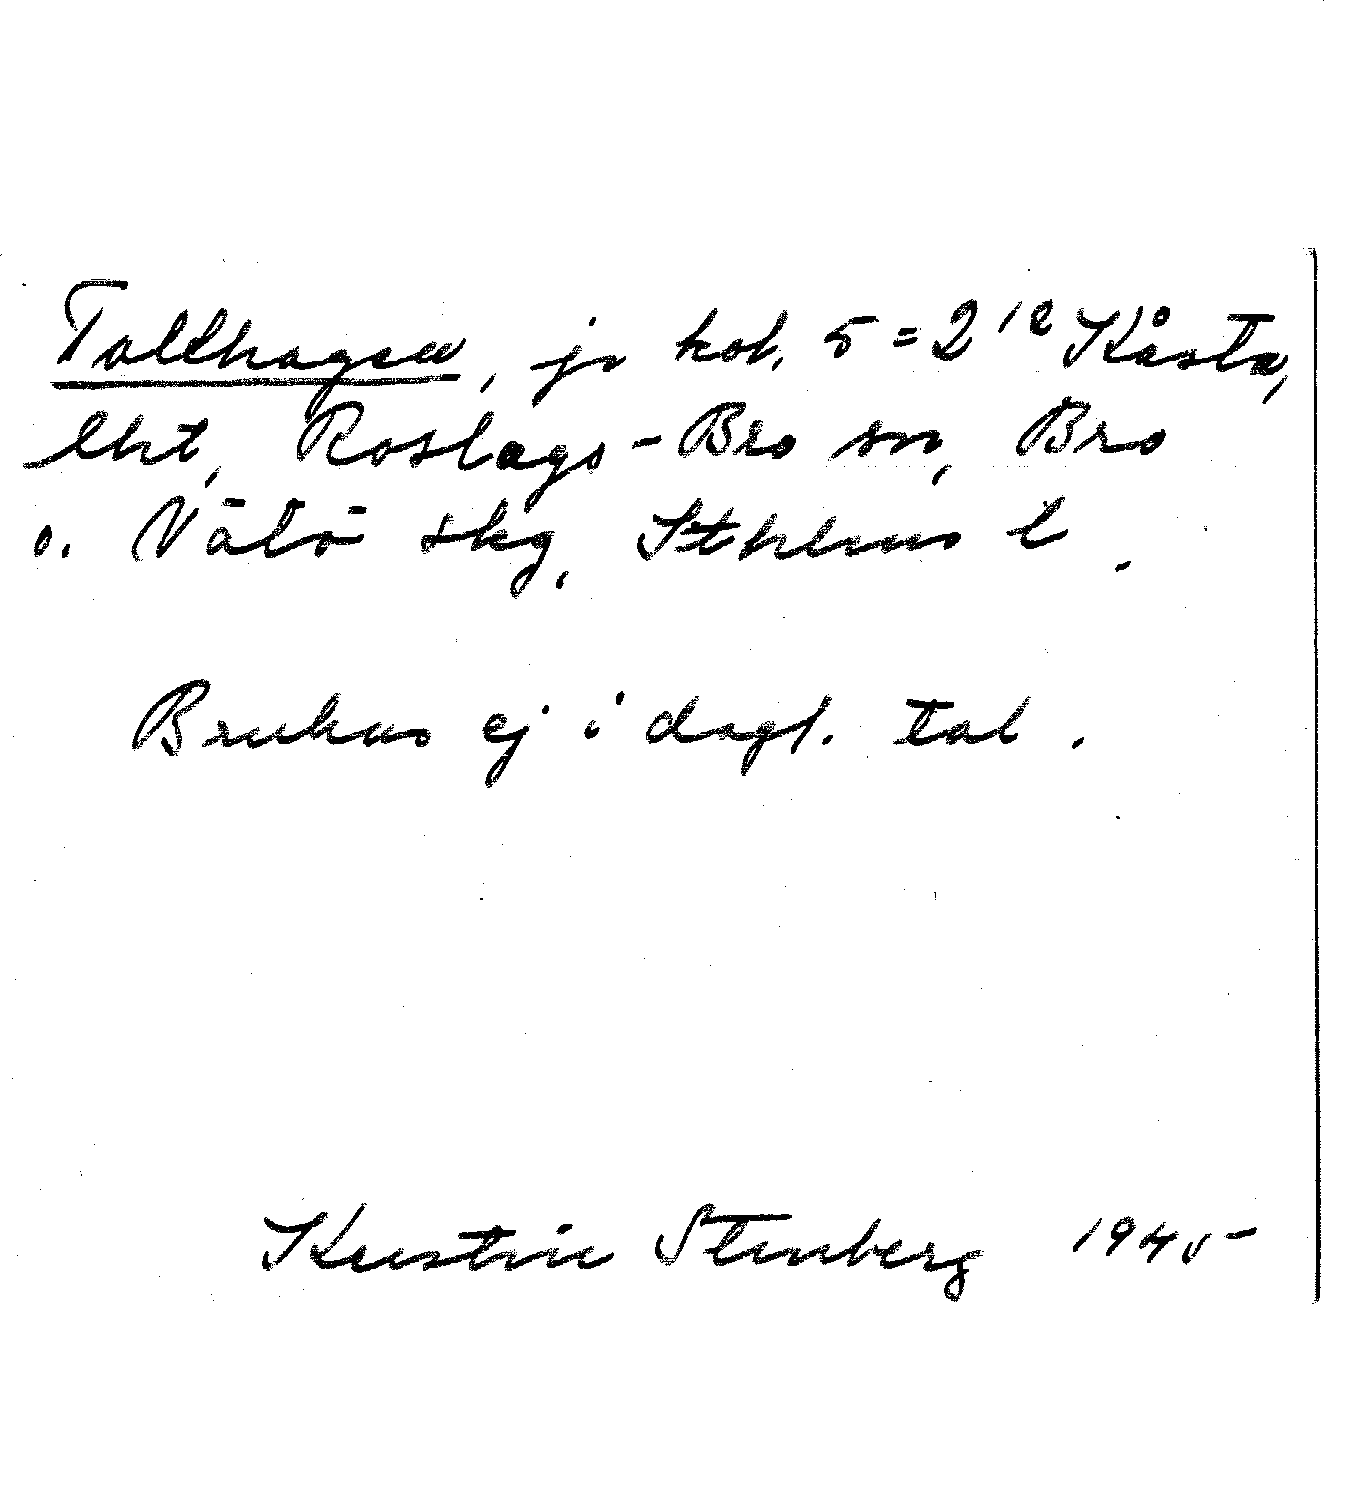 Tallhagen, jr kol. 5 = 2¹² Kåsta,
lht, Roslags-Bro sn, Bro
o. Vätö skg, Sthlms l.
Brukas ej i dagl. tal.
Kerstin Stenberg 1945